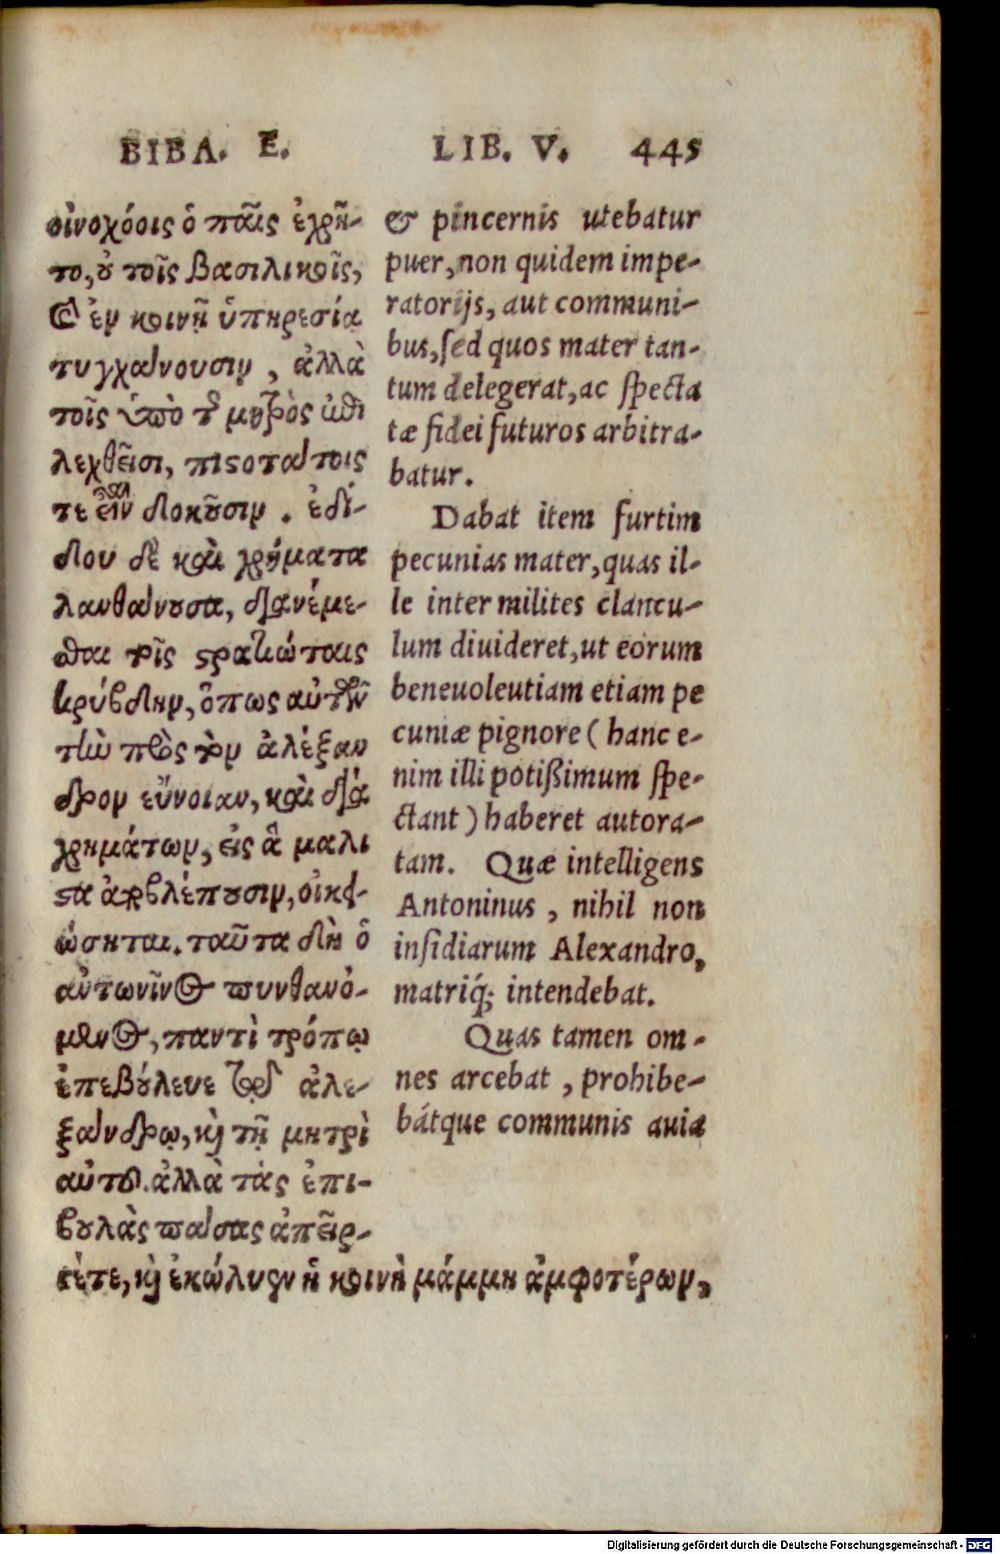 ΒΙΒΛ. Ε.
οἰνοχόοις ὁ παῖς ἐχρῆ-
το, οὐ τοῖς βασιλικοῖς,
καὶ ἐν κοινῇ ὑπηρεσίᾳ
τυγχάνουσιν, ἀλλὰ
τοῖς ὑπὸ τῆς μητρὸς ἐπι
λεχθεῖσι, πιστοτάτοις
τε εἶναι δοκοῦσιν. ἐδί-
δου δὲ καὶ χρήματα
λανθάνουσα, διανέμε-
σθαι τοῖς στρατιώταις
κρύβδην, ὅπως αὐτῶν
τὴν πρὸς τὸν ἀλέξαν
δρον εὔνοιαν, καὶ διὰ
χρημάτων, εἰς ἃ μάλι
στα ἀποβλέπουσιν, οἰκει-
ώσηται. ταῦτα δὴ ὁ
αὐτωνῖνος πυνθανό-
μενος, παντὶ τρόπῳ
ἐπεβούλευε τῷ ἀλε-
ξάνδρῳ, καὶ τῇ μητρὶ
αὐτοῦ. ἀλλὰ τὰς ἐπι-
βουλὰς πάσας ἀπεῖρ-
γέτε, καὶ ἐκώλυσεν ἡ κοινὴ μάμμη ἀμφοτέρων,
LIB. V. 445
& pincernis utebatur
puer, non quidem impe-
ratorijs, aut communi-
bus, sed quos mater tan-
tum delegerat, ac specta
tæ fidei futuros arbitra-
batur.
Dabat item furtim
pecunias mater, quas il-
le inter milites clancu-
lum diuideret, ut eorum
beneuoleutiam etiam pe
cuniæ pignore (hanc e-
nim illi potißimum spe-
ctant) haberet autora-
tam. Quæ intelligens
Antoninus, nihil non
insidiarum Alexandro,
matriq́; intendebat.
Quas tamen om-
nes arcebat, prohibe-
bátque communis auia
Digitalisierung gefördert durch die Deutsche Forschungsgemeinschaft - DFG